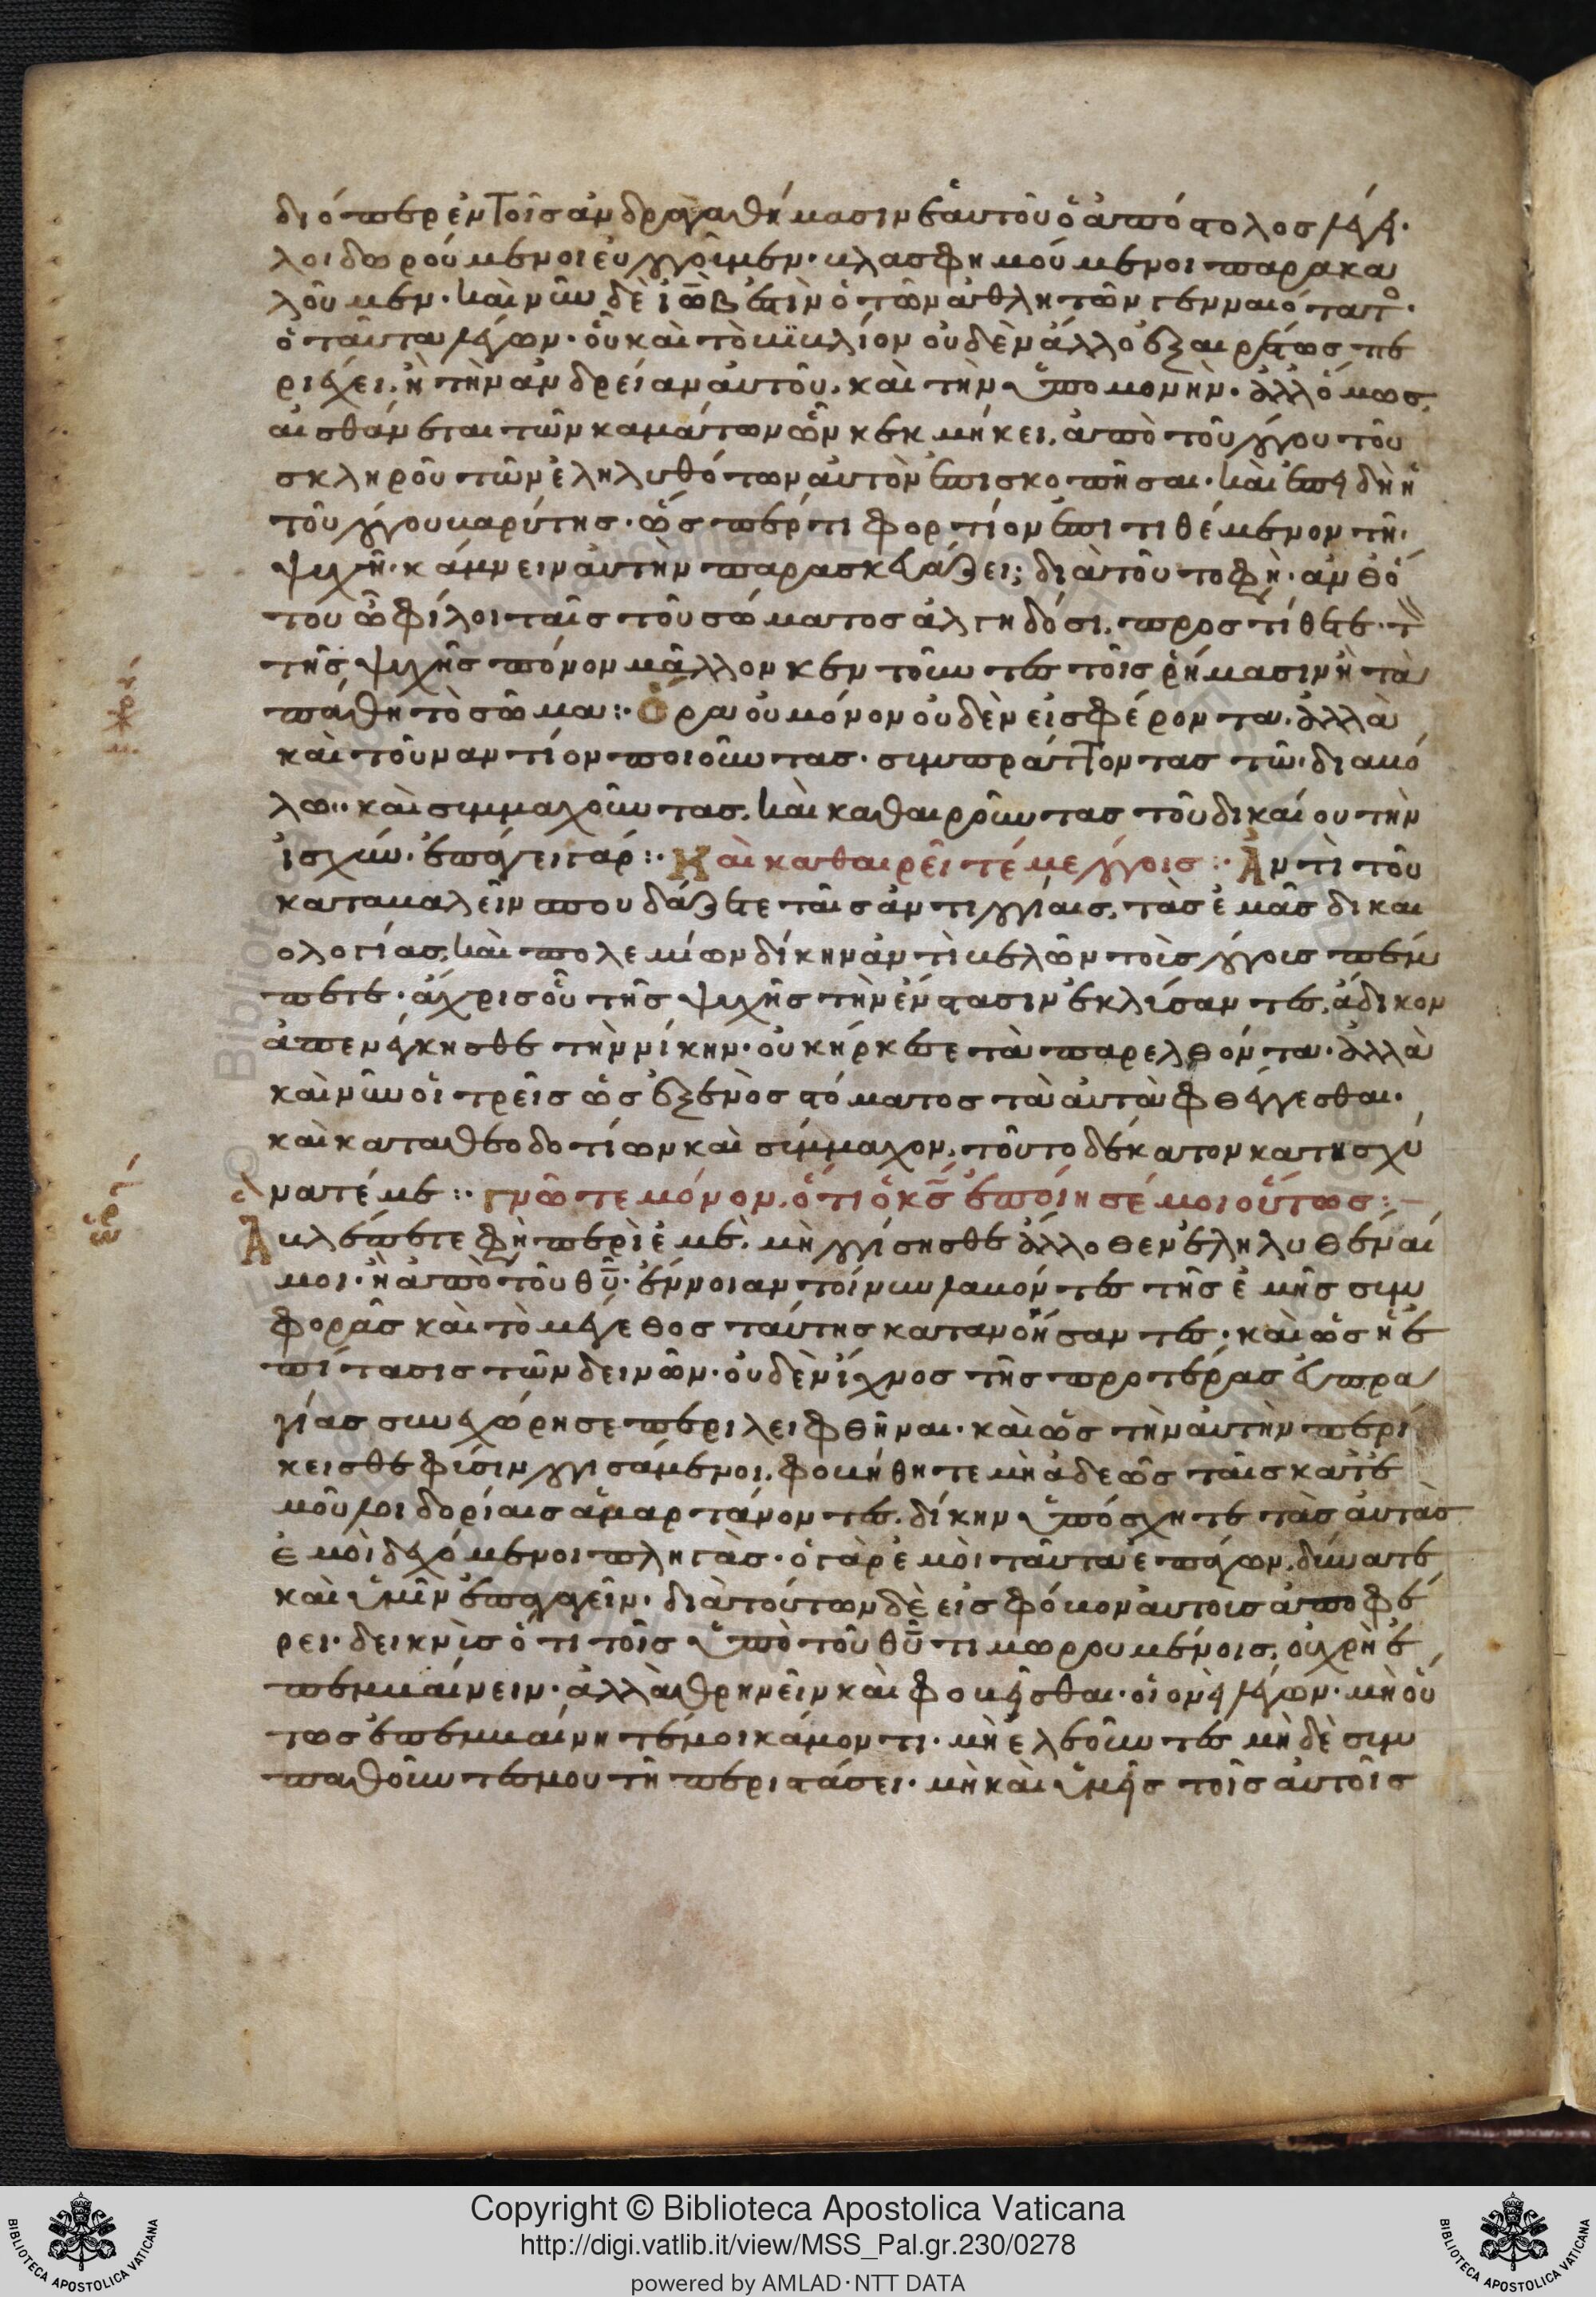 διόπερ ἐν τοῖς ἀνδραγαθήμασιν ἑαυτοῦ ὁ ἀπόστολος λέγει·
λοιδωρούμενοι εὐλογοῦμεν· βλασφημούμενοι παρακα
λοῦμεν· καὶ νῦν δὲ ἰὼβ ἐστὶν ὁ τῶν ἀθλητῶν γενναιότατος·
ὁ ταῦτα λέγων· οὗ καὶ τὸ βιβλίον οὐδὲν ἄλλο ἐξαιρέτως πε
ριέχει, ἢ τὴν ἀνδρείαν αὐτοῦ, καὶ τὴν ὑπομονήν· ἀλλ' ὅμως,
αἰσθάνεται τῶν καμάτων ὧν κεκμήκει, ἀπὸ τοῦ λόγου τοῦ
σκληροῦ τῶν ἐληλυθότων αὐτὸν ἐπισκοπῆσαι· καὶ ἐπειδὴ ἡ
τοῦ λόγου βαρύτης· ὥσπερ τι φορτίον ἐπιτιθέμενον τῇ
ψυχῇ· κάμνειν αὐτὴν παρασκευάζει; διὰ τοῦτο φὴ· ἀνθ' ὅ
του ὦ φίλοι ταῖς τοῦ σώματος ἀλγηδόσι, προστίθετε· τὸν
τῆς ψυχῆς πόνον μᾶλλον κεντοῦντες τοῖς ῥήμασιν ἢ τὰ
πάθη τὸ σῶμα :· Ὅρα οὐ μόνον οὐδὲν εἰσφέροντα, ἀλλὰ
καὶ τοὐναντίον ποιοῦντας· συμπράττοντας τῶ διαβό
λω·· καὶ συμμαχοῦντας, καὶ καθαιροῦντας τοῦ δικαίου τὴν
ἰσχύν· ἐπάγει γάρ :· Καὶ καθαιρεῖτέ με λόγοις :· Ἀντὶ τοῦ
καταβαλεῖν σπουδάζετε ταῖς ἀντιλογίαις, τὰς ἐμὰς δικαι
ολογίας, καὶ πολεμίων δίκην ἀντὶ βελῶν τοῖς λόγοις πέμ
πετε· ἄχρις οὗ τῆς ψυχῆς τὴν ἔνστασιν ἐκλύσαντες, ἄδικον
ἀπενέγκησθε τὴν νίκην· οὐκ ἤρκεσε τὰ παρελθόντα· ἀλλὰ
καὶ νῦν οἱ τρεῖς ὡς ἐξ ἑνὸς στόματος τὰ αὐτὰ φθέγγεσθαι·
καὶ καταιθεοδοτίων καὶ σύμμαχον, τοῦτο δέκατον κατῃσχύ
νατέ με :· γνῶτε μόνον, ὅτι ὁ κς ἐποίησέ μοι οὕτως :—
Ἀβλέπετε φὴ περὶ ἐμὲ, μὴ λογίσησθε ἄλλοθεν ἐληλυθέναί
μοι· ἢ ἀπὸ τοῦ θυ· ἔννοιαν τοίνυν λαβόντες τῆς ἐμῆς συμ
φορᾶς καὶ τὸ μέγεθος ταύτης κατανοήσαντες· καὶ ὡς ἡ ἐ
πίτασις τῶν δεινῶν· οὐδὲν ἴχνος τῆς προτέρας εὐπρα
γίας συνεχώρησε περιλειφθῆναι· καὶ ὡς τὴν αὐτὴν περί
κεισθε φύσιν λογισάμενοι, φοβήθητε μὴ ἀδεῶς ταῖς κατ' ἐ
μοῦ λοιδορίαις ἁμαρτάνοντες, δίκην ὑπόσχητε τὰς αὐτὰς
ἐμοὶ δεχόμενοι πληγάς· ὁ γὰρ ἐμοὶ ταῦτα ἐπάγων, δύναται
καὶ ὑμῖν ἐπαγαγεῖν· διὰ τούτων δὲ εἰς φόβον αὐτοὺς ἀποφέ
ρει· δεικνὺς ὅτι τοῖς ὑπὸ τοῦ θυ τιμωρουμένοις, οὐ χρὴ ἐ
πεμβαίνειν· ἀλλὰ θρηνεῖν καὶ φοβεῖσθαι· οἱονεὶ λέγων· μὴ οὕ
τως ἐπεμβαίνητέ μοι κάμνοντι· μὴ ἐλεοῦντες μηδὲ συμ
παθοῦντές μου τῇ περιστάσει· μὴ καὶ ὑμεῖς τοῖς αὐτοῖς
Copyright © Biblioteca Apostolica Vaticana
http://digi.vatlib.it/view/MSS_Pal.gr.230/0278
powered by AMLAD·NTT DATA